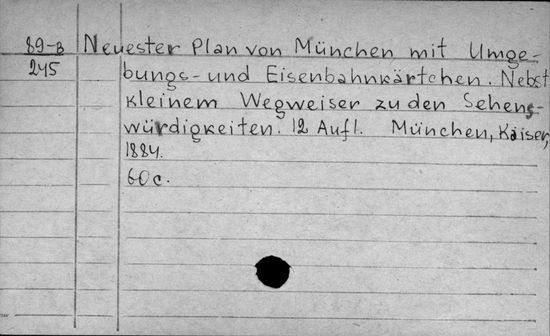 89-B Neuester Plan von München mit Umge-
245 bungs- und Eisenbahnkärtchen. Nebst
kleinem Wegweiser zu den Sehens-
würdigkeiten. 12 Aufl. München, Kaiser,
1884.
60 c.